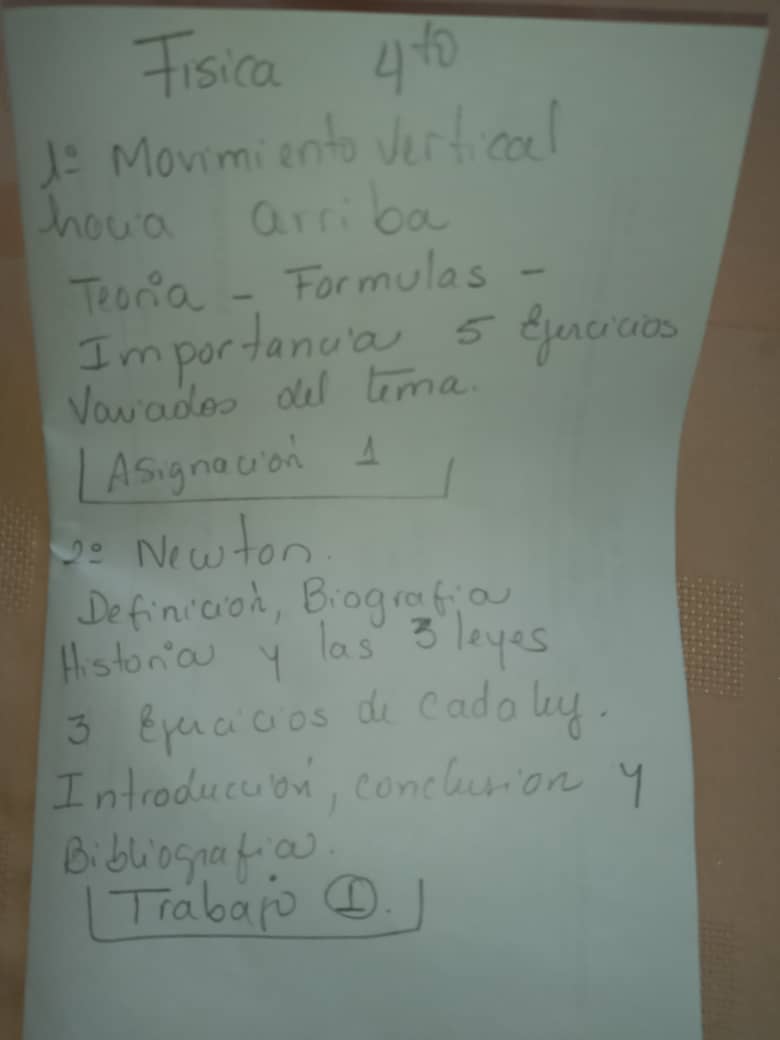 Fisica 4to
1º Movimiento Vertical
hacia arriba
Teoría - Formulas -
Importancia 5 Ejercicios
Variados del tema.
Asignación 1
2º Newton.
Definición, Biografia
Historia y las 3 leyes
3 Ejercicios de cada ley.
Introducción, conclusion y
Bibliografia.
Trabajo 1.